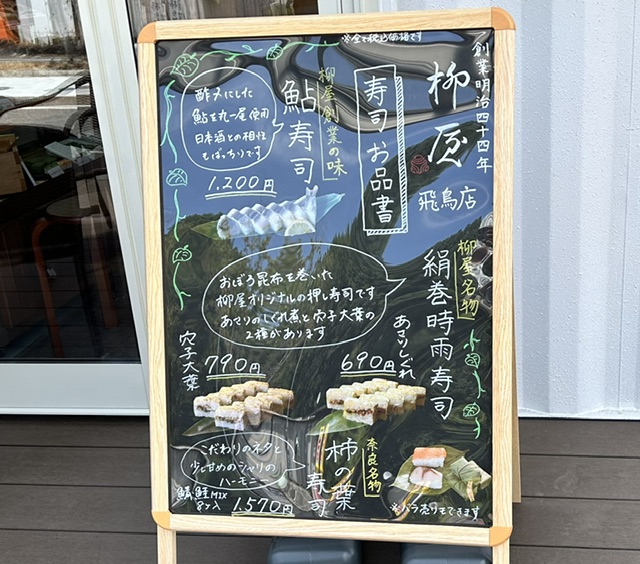 ※全て税込価格です
創業明治四十四年
柳屋
飛鳥店
寿司お品書
柳屋創業の味
鮎寿司
酢〆にした
鮎を丸一尾使用
日本酒との相性
もばっちりです
1,200円
柳屋名物
絹巻時雨寿司
おぼろ昆布を巻いた
柳屋オリジナルの押し寿司です
あさりのしぐれ煮と穴子大葉の
2種があります
あさりしぐれ
690円
穴子大葉
790円
奈良名物
柿の葉
寿司
こだわりのネタと
少し甘めのシャリの
ハーモニー
鯖・鮭MIX
8ヶ入
1,570円
※バラ売りもできます